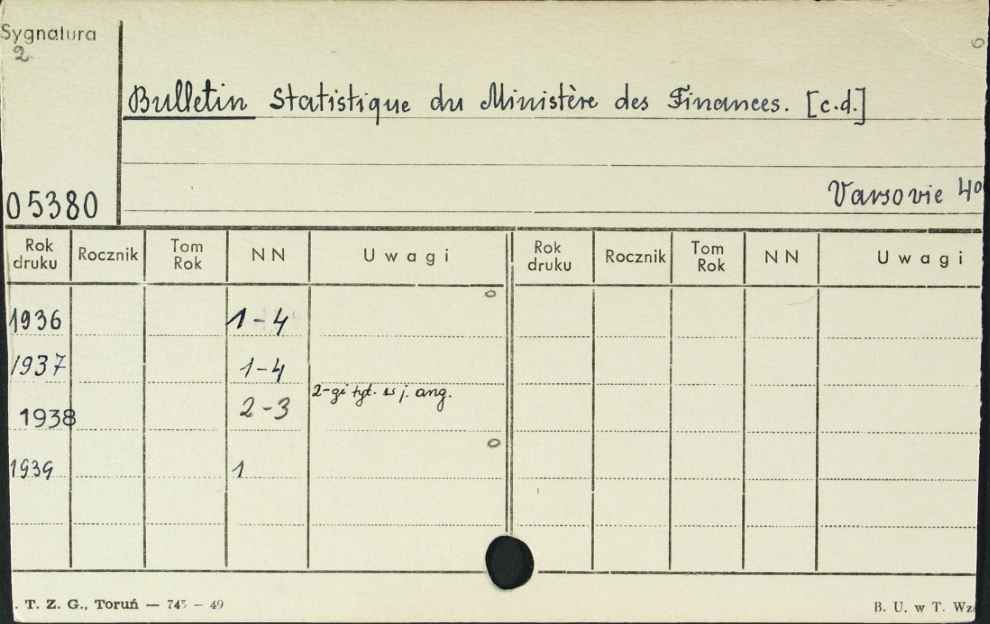 Sygnatura
2
Bulletin Statistique du Ministère des Finances. [c.d.]
Varsovie 4º
05380
Rok druku Rocznik Tom Rok NN Uwagi Rok druku Rocznik Tom Rok NN Uwagi
1936 1-4
1937 1-4
2-gi tyt. w j. ang.
1938 2-3
1939 1
. T. Z. G., Toruń — 745 - 49
B. U. w T. Wz